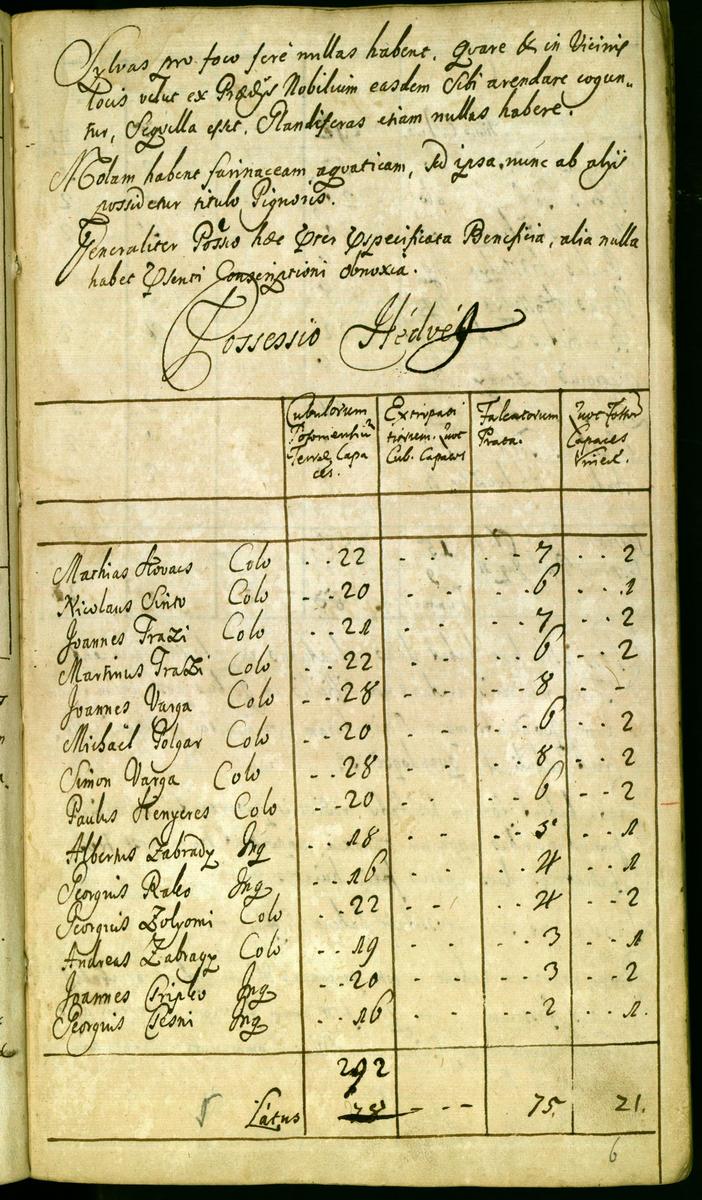 Sylvas pro foco ferè nullas habent. Quare & in Vicinis
locis velut ex Prædijs Nobilium easdem Sibi arendare cogun„
tur, Seqvella esset. Glandiferas etiam nullas habere.
Molam habent farinaceam aqvaticam, sed ipsa nunc ab alijs
possidetur titulo Pignoris.
Generaliter Possio hæc præter præspecificata Beneficia, alia nulla
habet præsenti Conscriptioni obnoxia.
Possessio Hédvég
Cubulorum Posoniensiū Terræ Capaces. Extirpatitiarum. Quot Cub. Capaces Falcatorum Prata. Quot Fossor Capaces Vineæ.
Mathias Kovacs Colo . . 22 - - - . . 7 . . 2
Nicolaus Sinto Colo . . 20 - - - . . 6 . . 1
Joannes Trazi Colo . . 21 - - - . . 7 . . 2
Martinus Trazi Colo . . 22 - - - . . 6 . . 2
Joannes Varga Colo . . 28 - - - . . 8 . -
Michaël Polgar Colo . . 20 - - - . . 6 . . 2
Simon Varga Colo . . 28 - - - . . 8 . . 2
Paulus Kenyeres Colo . . 20 - - - . . 6 . . 2
Albertus Zabrady Inq . . 18 - - - . . 5 . . 1
Georgius Rako Inq . . 16 - - - . . 4 . . 1
Georgius Zolyomi Colo . . 22 - - - . . 4 . . 2
Andreas Zabragy Colo . . 19 - - - . . 3 . . 1
Joannes Csipko Inq . . 20 - - - . . 3 . . 2
Georgius Csesni Inq . . 16 - - - . . 2 . . 1.
292
Látus 78 - - - 75. 21.
6